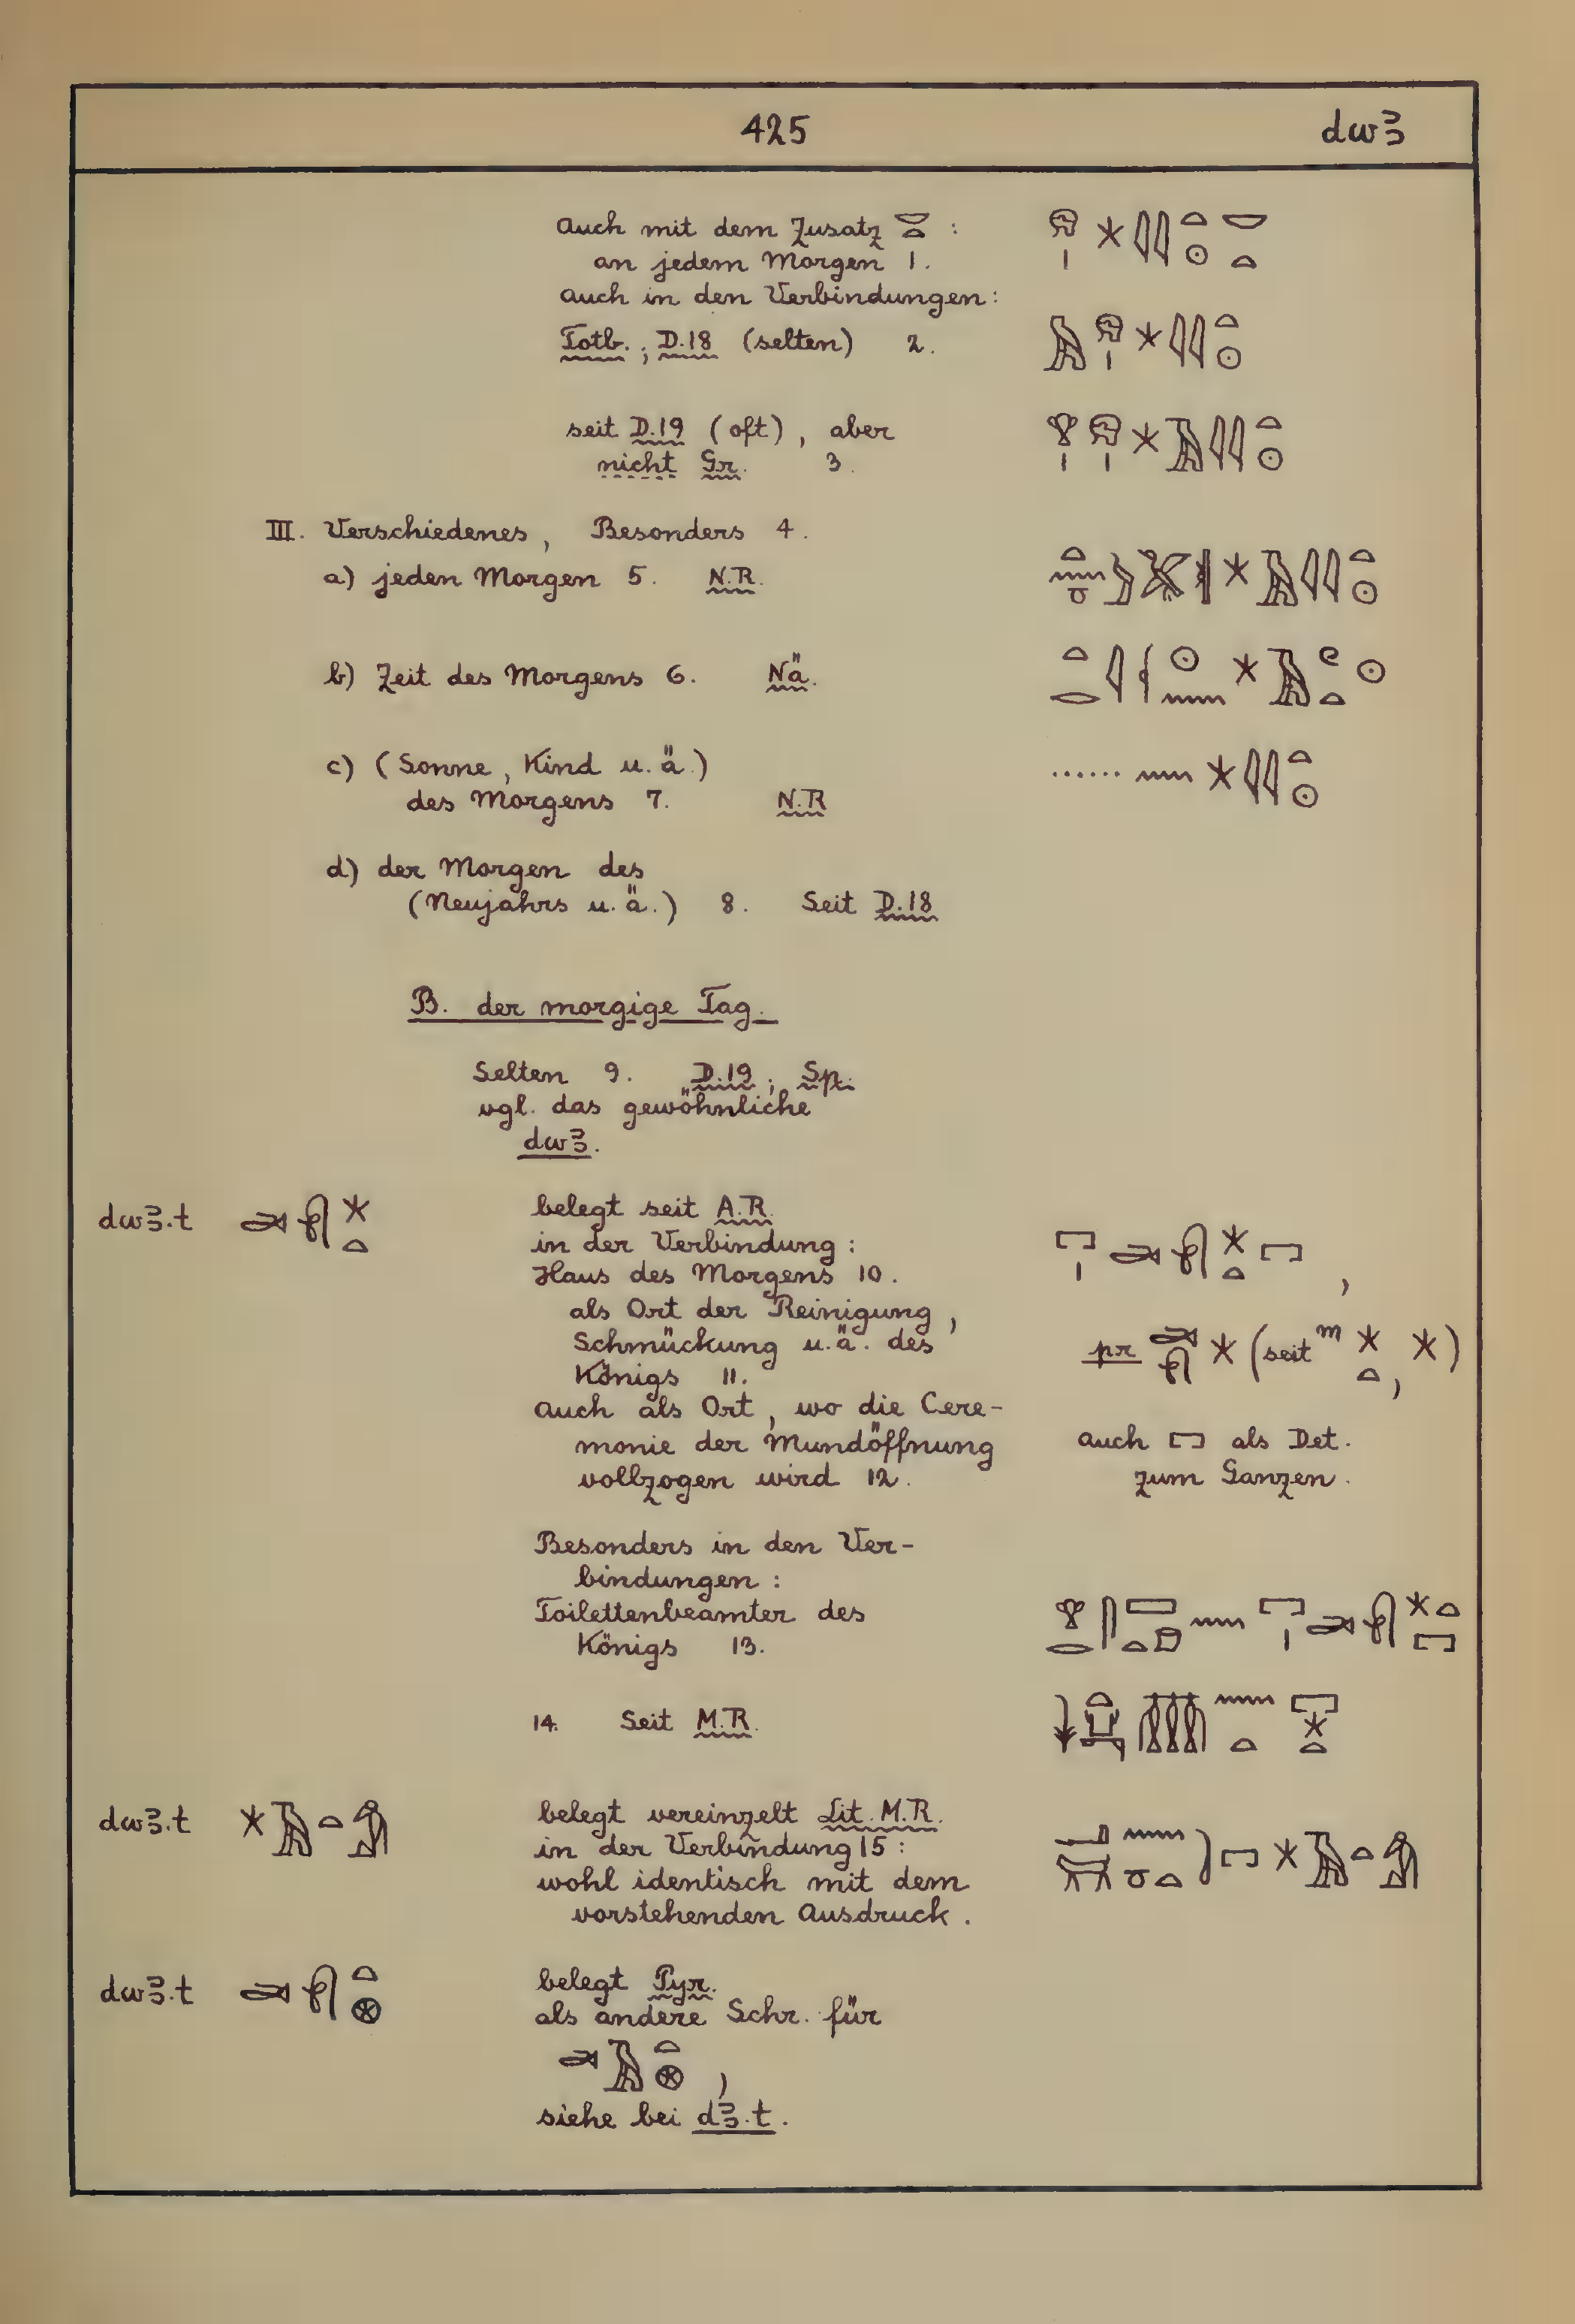 425 dwꜣ
Auch mit dem Zusatz 𓎟𓏏 :
an jedem Morgen 1.
Auch in den Verbindungen:
Totb.; D.18 (selten) 2.
seit D.19 (oft), aber
nicht Gr. 3.
III. Verschiedenes, Besonders 4.
a) jeden Morgen 5. N.R.
b) Zeit des Morgens 6. Nä.
c) (Sonne, Kind u.ä.)
des Morgens 7. N.R
d) der Morgen des
(Neujahrs u.ä.) 8. Seit D.18
B. der morgige Tag.
Selten 9. D.19; Sp.
vgl. das gewöhnliche
dwꜣ.
dwꜣ.t belegt seit A.R.
in der Verbindung:
Haus des Morgens 10.
als Ort der Reinigung,
Schmückung u.ä. des
Königs 11.
pr (seit m , )
Auch als Ort, wo die Cere-
monie der Mundöffnung
vollzogen wird 12.
auch 𓉐 als Det.
zum Ganzen.
Besonders in den Ver-
bindungen:
Toilettenbeamter des
Königs 13.
14. Seit M.R.
dwꜣ.t belegt vereinzelt Lit. M.R.
in der Verbindung 15:
wohl identisch mit dem
vorstehenden Ausdruck.
dwꜣ.t belegt Pyr.
als andere Schr. für
siehe bei dꜣ.t.